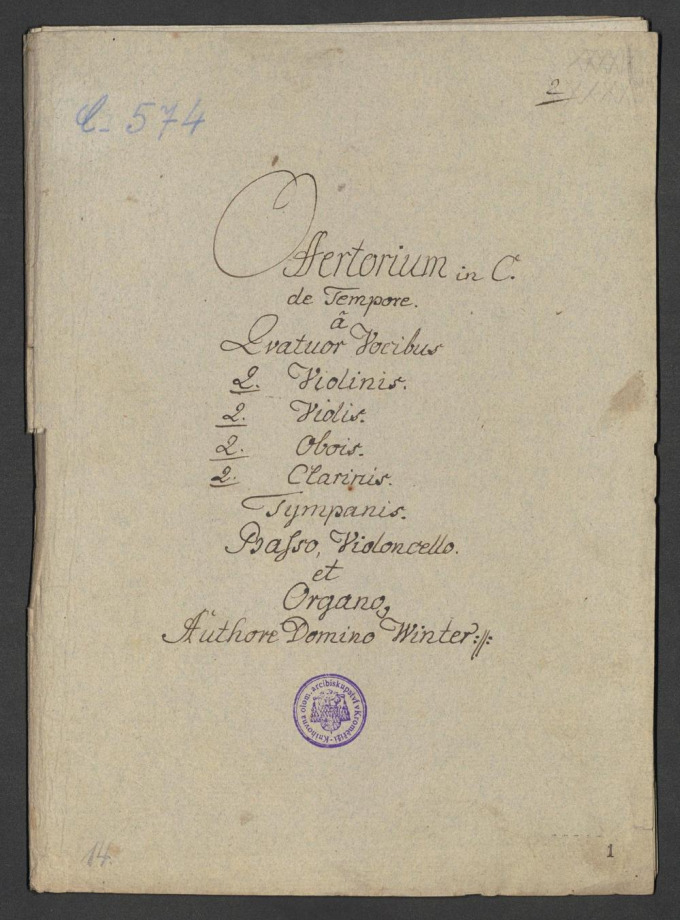 2
C. 574
Offertorium in C.
de Tempore.
â
Qvatuor Vocibus
2. Violinis.
2. Violis.
2. Obois.
2. Clarinis.
Tympanis.
Basso, Violoncello.
et
Organo,
Authore Domino Winter://:
Knihovna olom. arcibiskupství v Kroměříži
14.
1